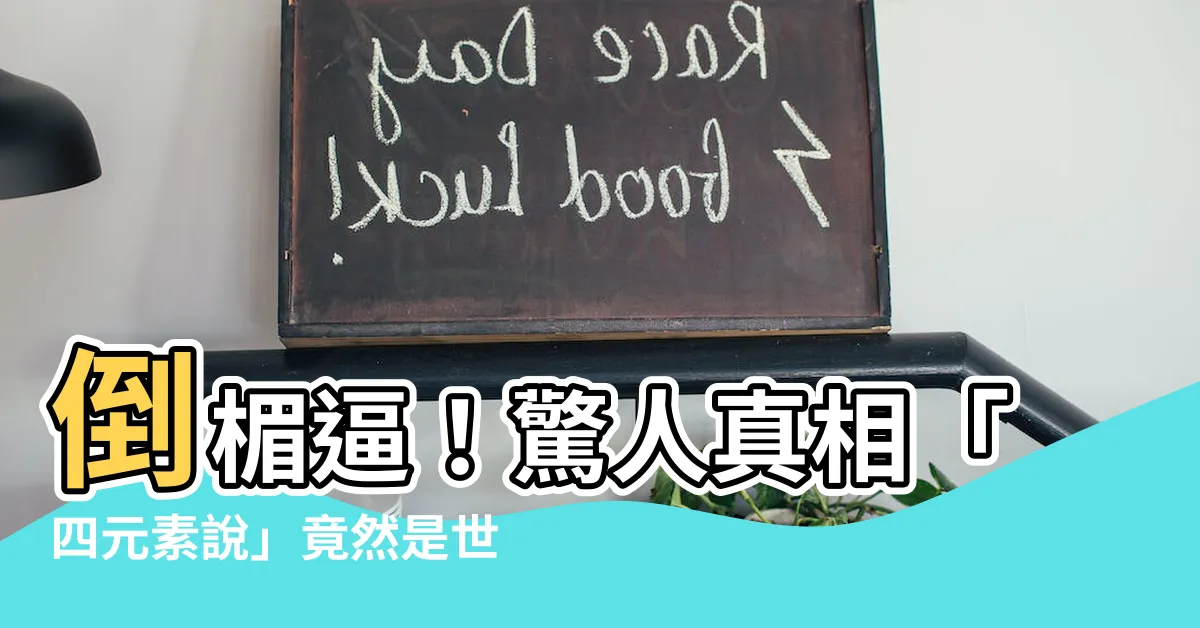 Race Day
Good Luck!
倒楣逼！驚人真相「
四元素說」竟然是世